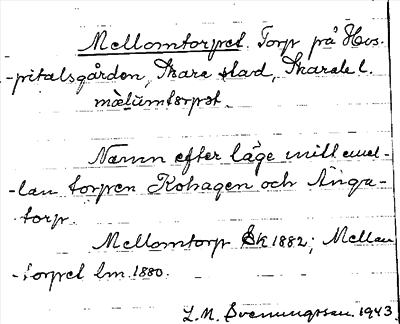 Mellomtorpet. Torp på Hos-
-pitalsgården, Skara stad, Skarab l.
mælumtorpet.
Namn efter läge mitt emel-
-lan torpen Kohagen och Änga-
torp.
Mellomtorp Sk 1882; Mellan
-torpet lm. 1880.
L. M. Svenungsson. 1943.